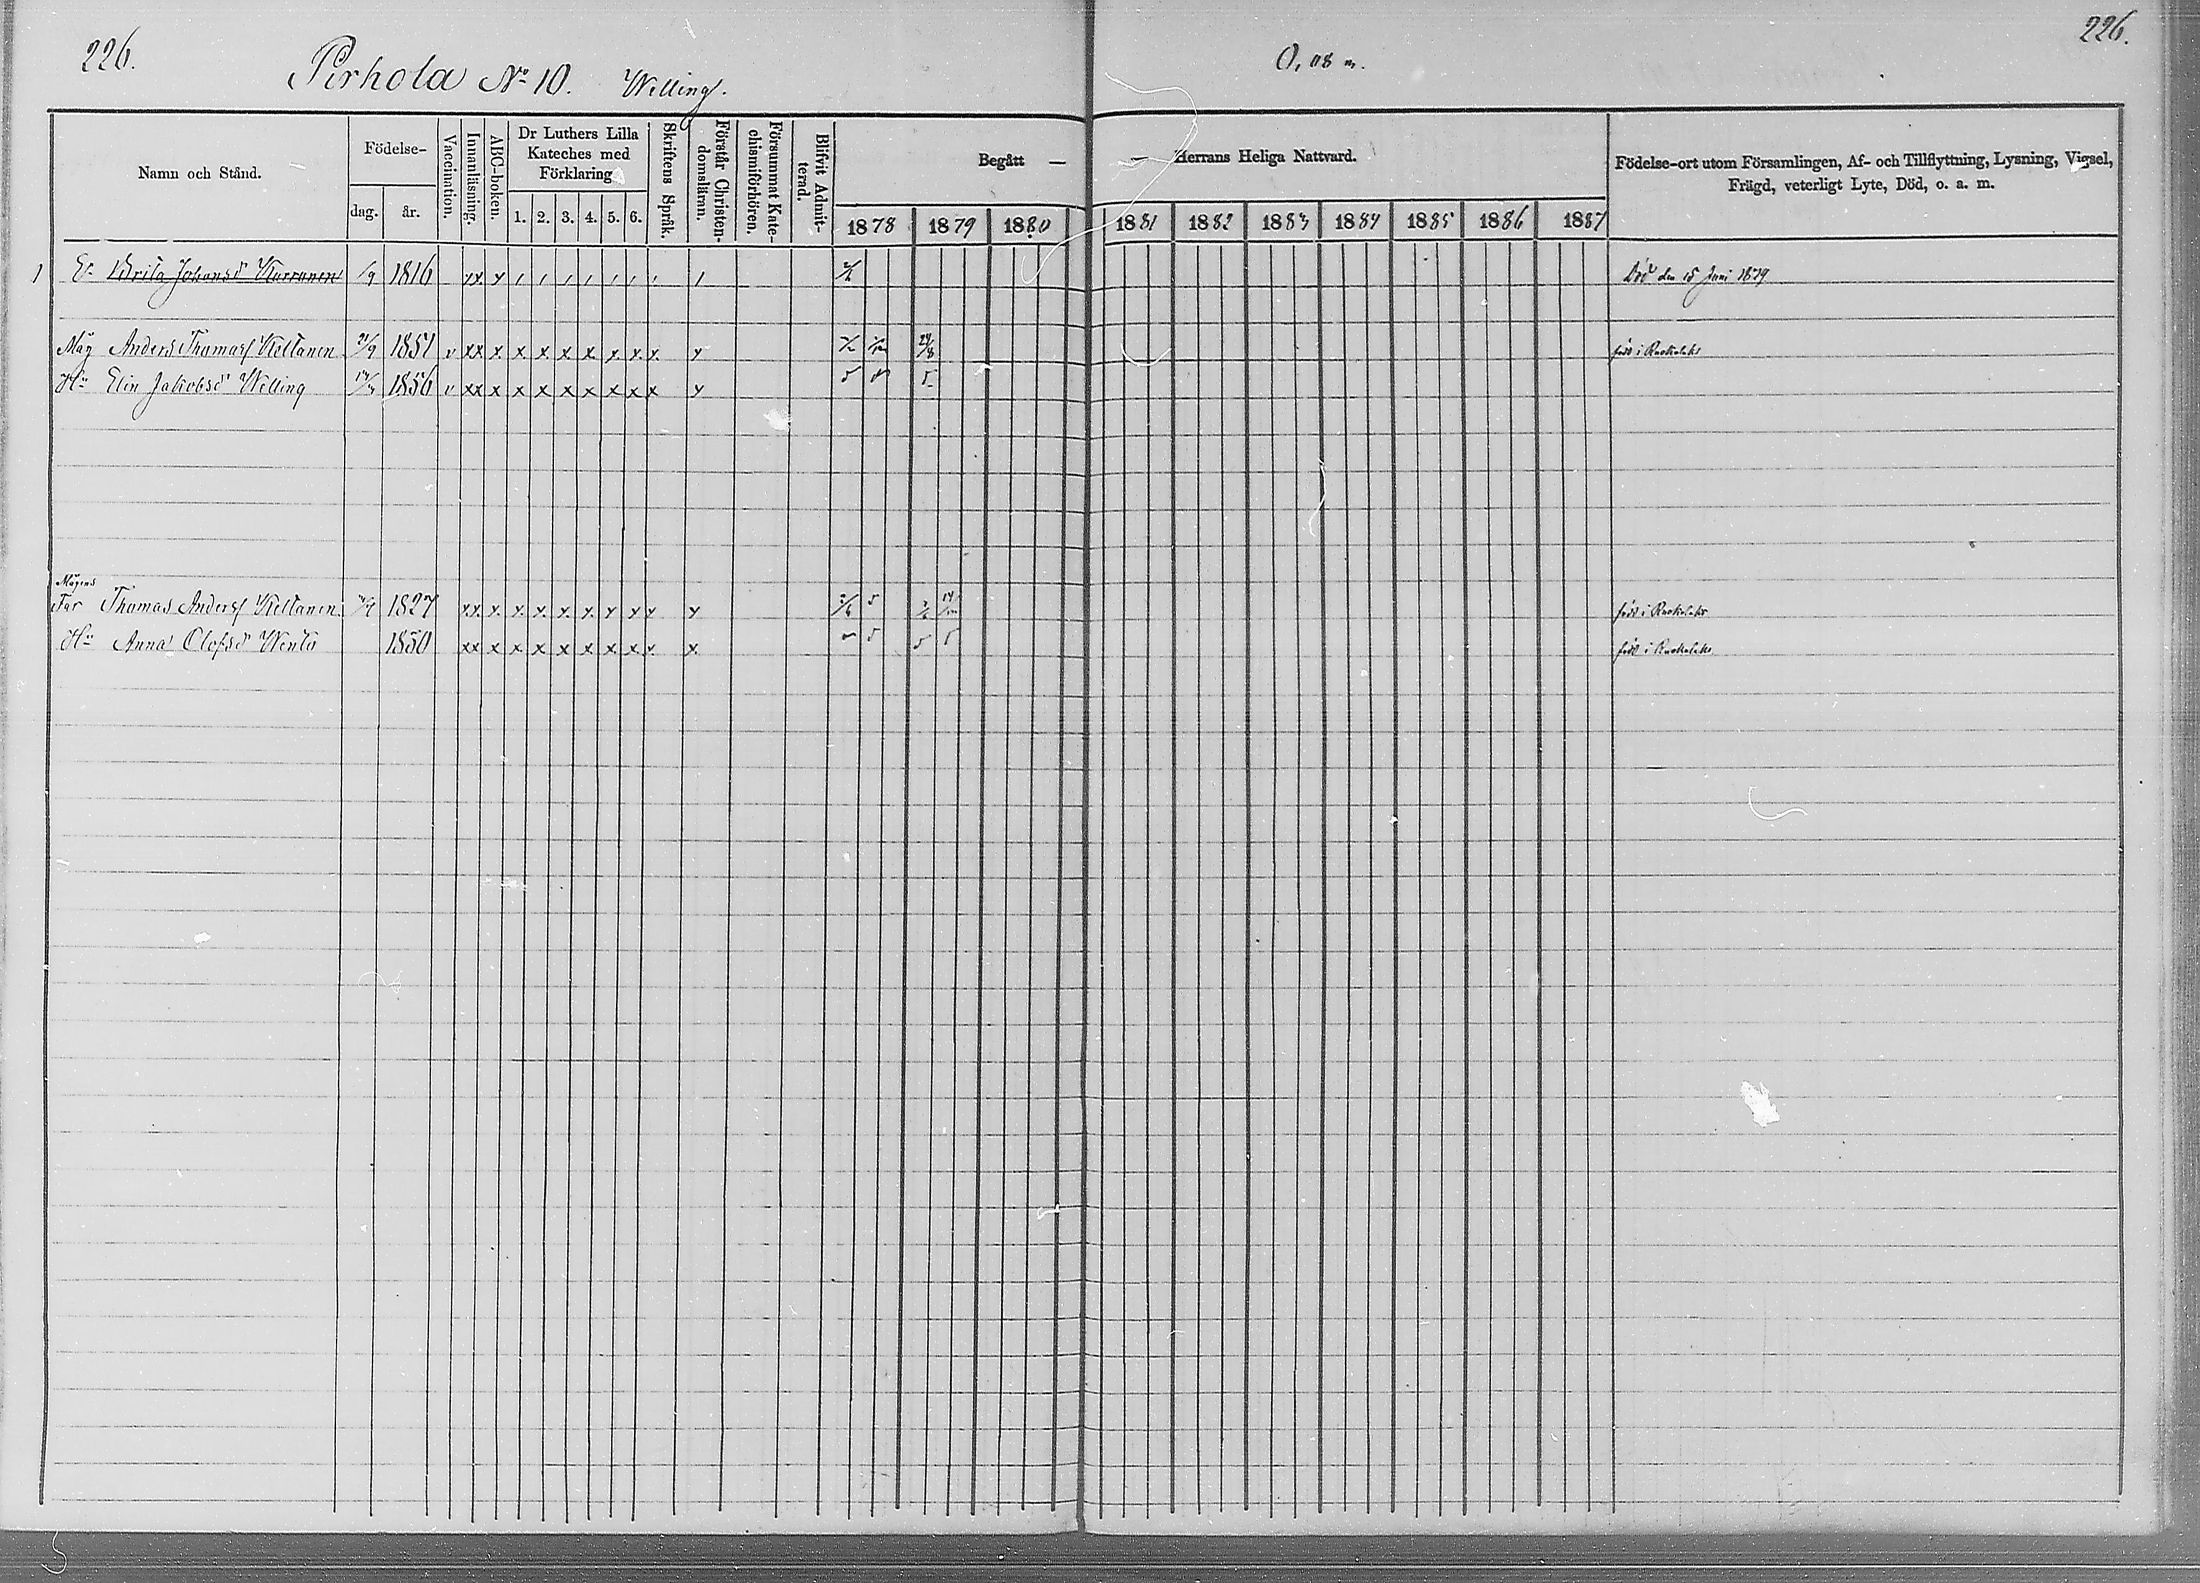 226.
Pirhola No 10. Welling.
O,08 m.
226.
Namn och Stånd.
Födelse-
dag.
år.
Vaccination.
Innanläsning.
ABC-boken.
Dr Luthers Lilla
Kateches med
Förklaring
1. 2. 3. 4. 5. 6.
Skriftens Språk.
Förstår Christen-
domsläran.
Försummat Kate-
chismiförhören.
Blifvit Admit-
terad.
Begått —
— Herrans Heliga Nattvard.
1878 1879 1880 1881 1882 1883 1884 1885 1886 1887
Födelse-ort utom Församlingen, Af- och Tillflyttning, Lysning, Vigsel,
Frägd, veterligt Lyte, Död, o. a. m.
1 Johansd 1816 xx x Död den 15 Juni 1879
Måg Anders Thomasf Keltanen 1851 v xx x x x x x x x x x 24/8 född i Ruokolaks
Hu Elin Jakobsd Welling 1856 v xx x x x x x x x x x
Mågens
Far Thomas Andersf Keltanen 1827 xx x x x x x x x x x född i Ruokolaks
Hu Anna Olofsd 1830 xx x x x x x x x x x född i Ruokolaks